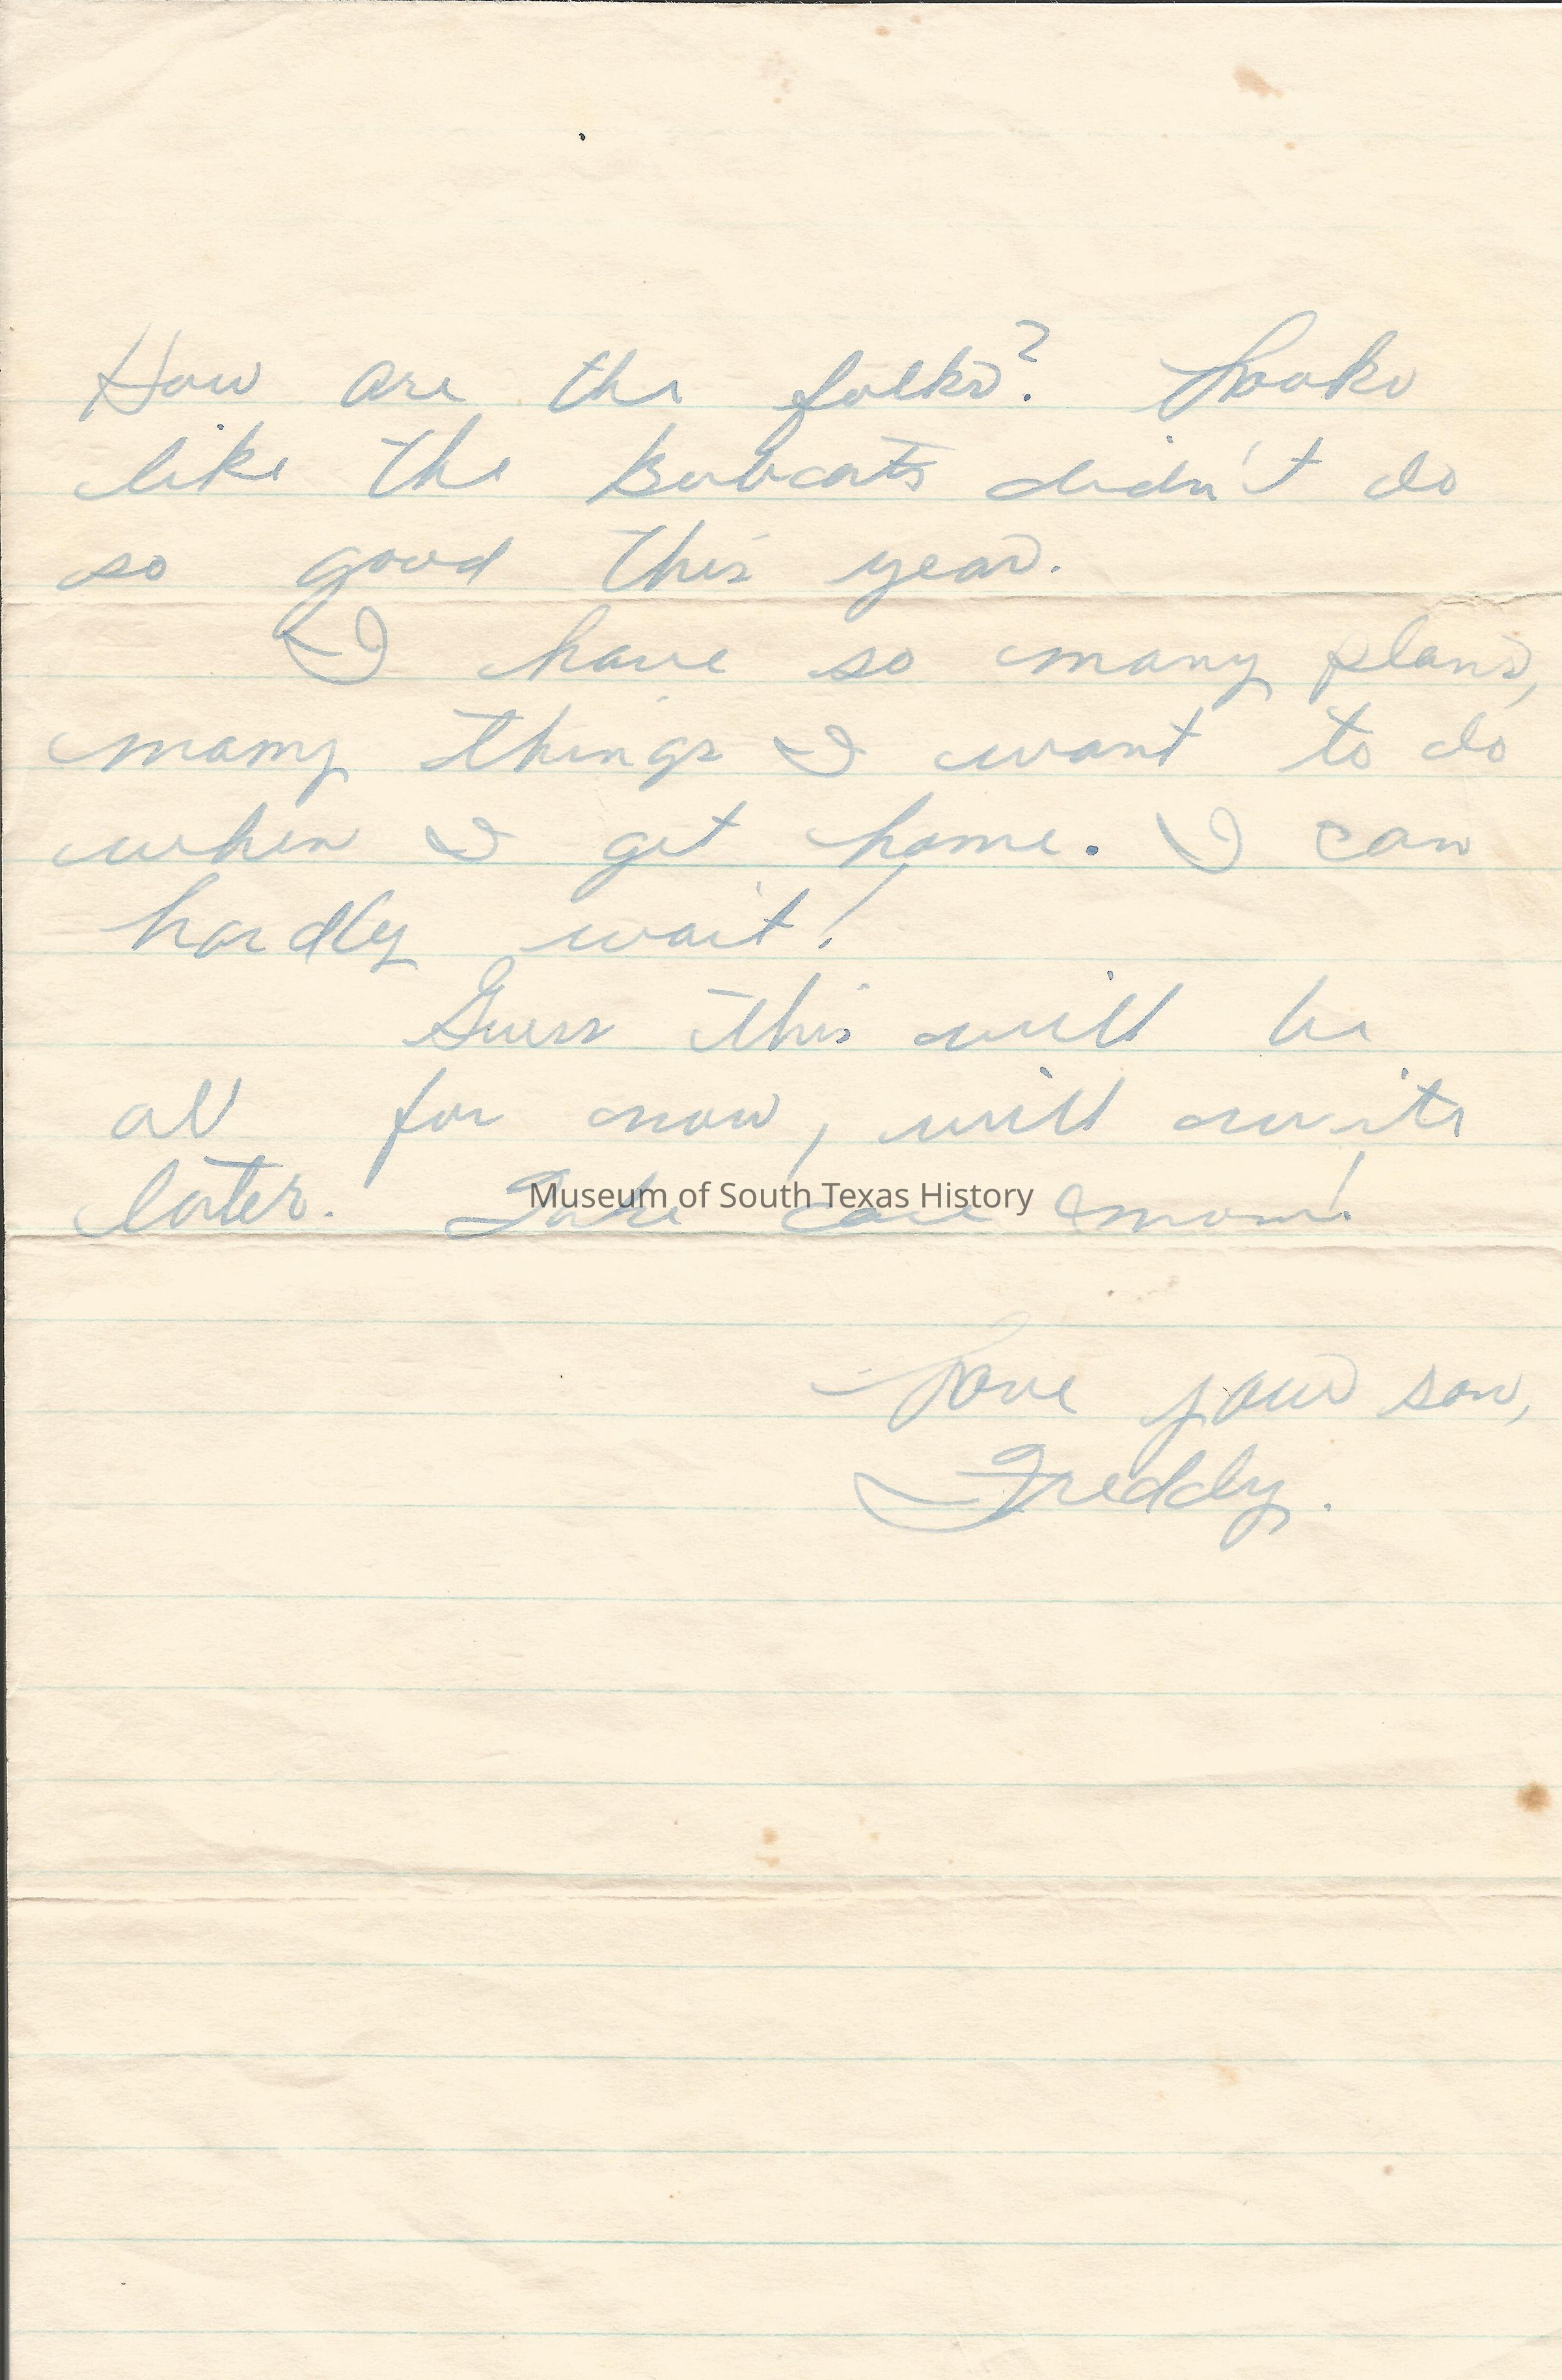 How are the folks? Looks
like the Bobcats didn't do
so good this year.
I have so many plans,
many things I want to do
when I get home. I can
hardly wait!
Guess this will be
all for now, will write
later. Take care mom!
Museum of South Texas History
Love your son,
Freddy.